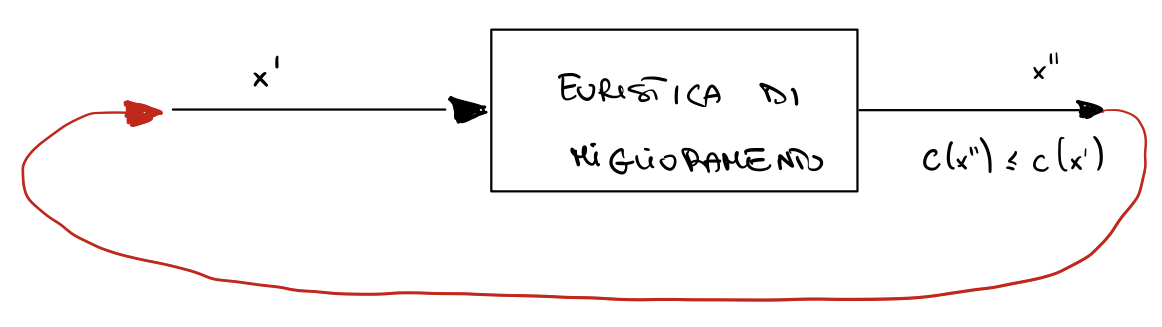 x'
EURISTICA DI
MIGLIORAMENTO
x''
C(x'') ≤ C(x')